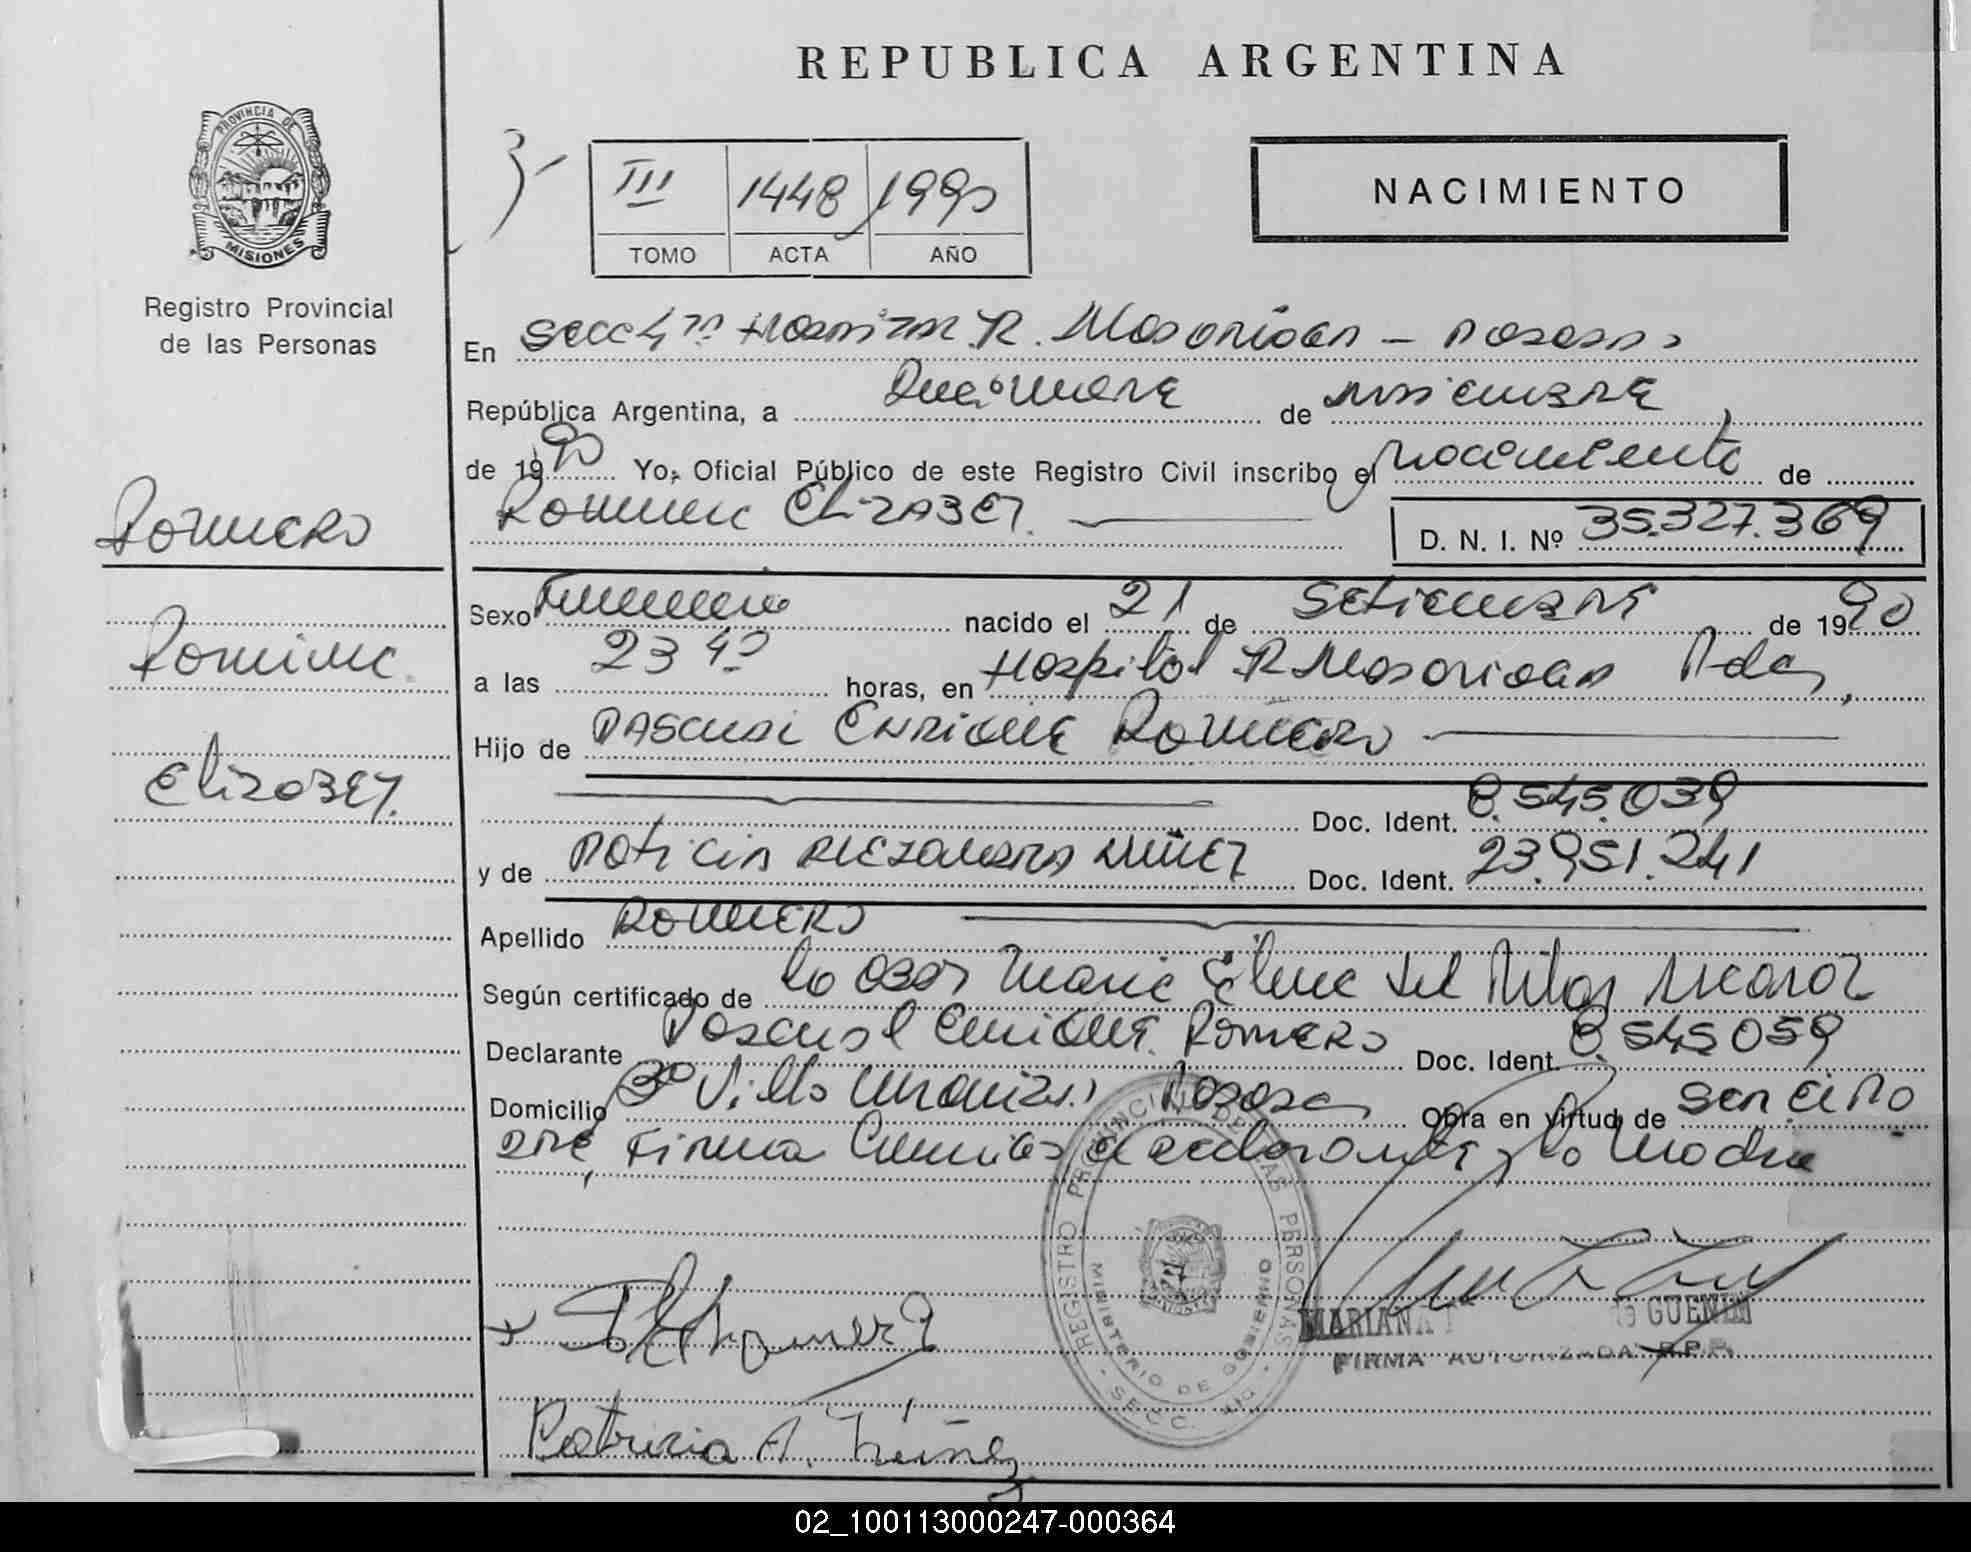 REPUBLICA ARGENTINA
PROVINCIA DE
MISIONES
Registro Provincial
de las Personas
3-
III 1448 1990
TOMO ACTA AÑO
NACIMIENTO
En Secc 4ta Hospital R. Madariaga - Posadas
República Argentina, a de
de 1990 Yo, Oficial Público de este Registro Civil inscribo el nacimiento de
Romina Elizabet
D. N. I. Nº 35.327.369
Romero
Romina
Elizabet.
Sexo Femenino nacido el 21 de Setiembre de 1990
a las 23 40 horas, en Hospital R Madariaga Pdas,
Hijo de Pascual Enrique Romero
Doc. Ident. 8.545.039
y de Patricia Alejandra Nuñez Doc. Ident. 23.951.241
Apellido Romero
Según certificado de la Obst Maria Elena del Pilar
Declarante Pascual Enrique Romero Doc. Ident. 8.545.059
Domicilio Bº Villa Urquiza Posadas Obra en virtud de ser el pa
dre, Firma el declarante y la madre
REGISTRO PROVINCIAL DE LAS PERSONAS
MINISTERIO DE GOBIERNO
SECC.
MARIANA GUENIN
FIRMA AUTORIZADA R.P.P.
Patricia A. Núñez
02_100113000247-000364